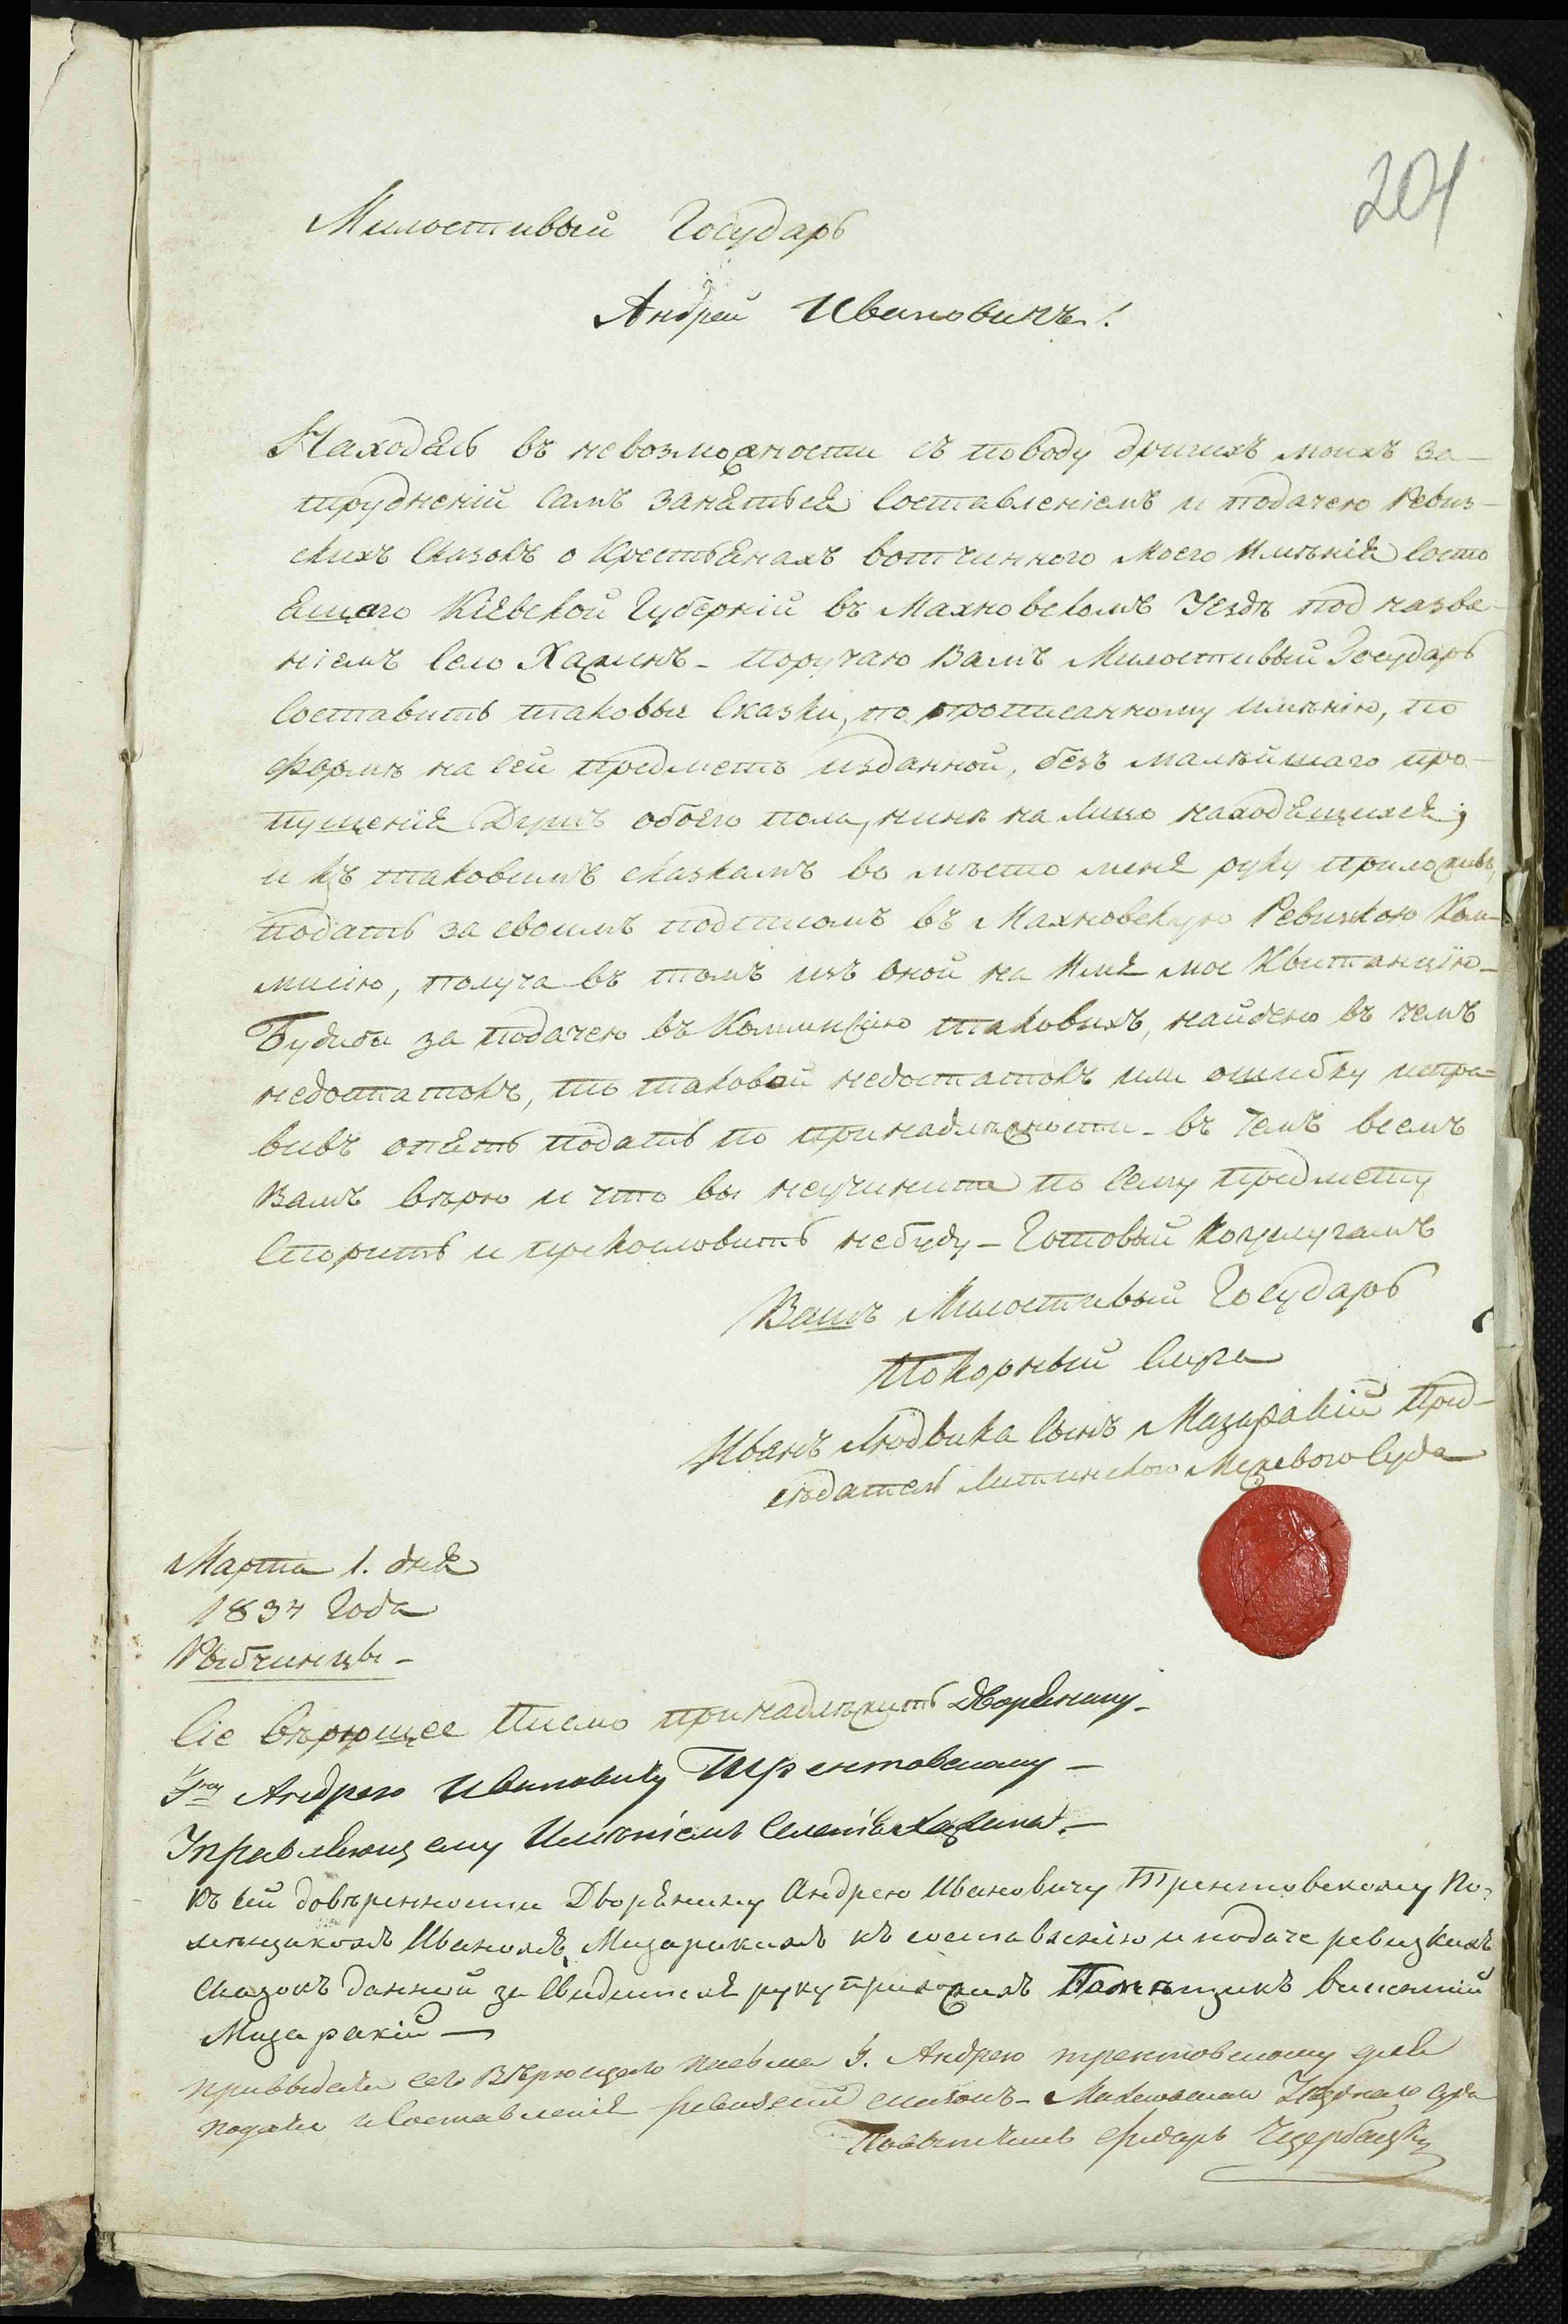 201
Милостивый Государь
Андрей Ивановичъ!
Находясь въ невозможности съ поводу другихъ моихъ за-
трудненій самъ заняться составленіемъ и подачею Ревиз-
скихъ сказокъ о Крестьянахъ вотчинного моего Имѣнія состо
ящаго Кіевской Губерній въ Махновскомъ Уездѣ под назва-
ніемъ Село Хажинъ - поручаю Вамъ Милостивый Государь
составить таковые Сказки, по прописанному имѣнію, по
формѣ на сей предметъ изданной, безъ малѣйшаго про-
пущенія Душъ обоего пола, нинѣ на лицо находящихся;
и къ таковимъ сказкамъ во мѣсто меня руку приложивъ,
подать за своимъ подписомъ въ Махновскую Ревизкою Ком-
мисію, получа въ томъ изъ оной на Имя мое Квитанцію-
Будибы за подачею въ Коммисію таковихъ, найдено въ чемъ
недостатокъ, то таковой недостатокъ или ошибку испра-
вивъ опять подать по принадлѣжности - въ чемъ всемъ
Вамъ вѣрю и что вы неучините по сему предмету
спорить и прекословить небуду - Готовый куслугамъ
Вашъ Милостивый Государь
Покорный Слуга
Иванъ Людвика сынъ Мазаракій Пред-
сѣдатель Литинского Межевого Суда
Марта 1. дня
1834 Года
Рыбчинцы -
Сіе вѣрющее Писмо принадлѣжитъ Дворянину-
Андрею Ивановичу Трентовскому -
Управляющему Имѣніемъ Селенія Хажина. -
Къ сей довѣренности Дворянину Андрею Ивановичу Трентовскому По-
мѣщикомъ Иваномъ Мазаракимъ къ составленію и подаче ревизкихъ
Сказокъ данной за Свидителя руку приложилъ Помѣщикъ
Мазаракій -
сего Вѣрющаго писма Г. Андрею Трентовскому для
подачи и Составленія сказокъ - Суда